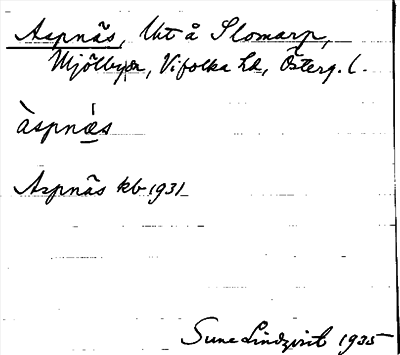 Aspnäs, Utå Slomarp,
Mjölby sn, Vifolka hd, Österg. l.
àspnæ̀s
Aspnäs kb 1931
Sune Lindqvist 1935